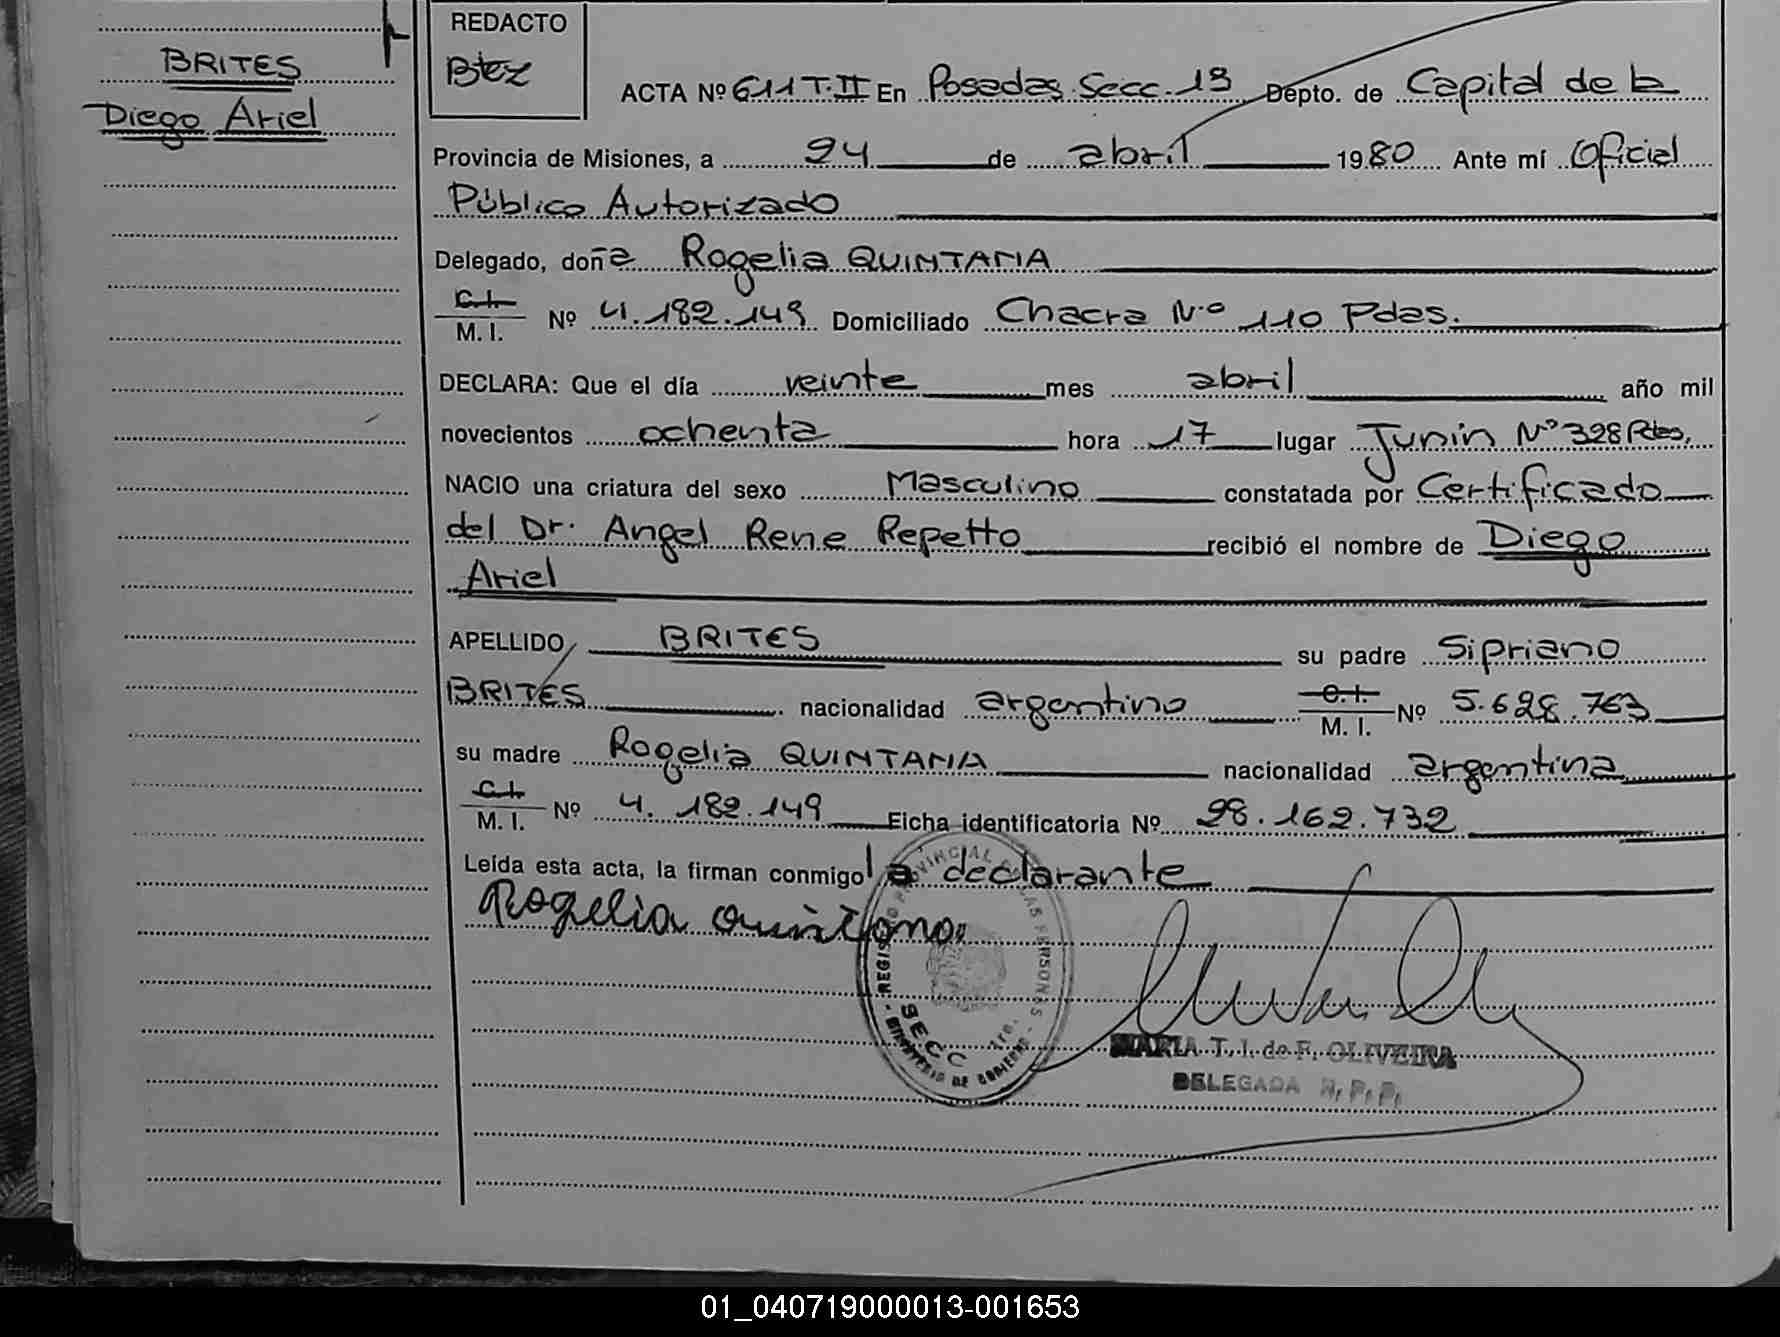 BRITES
Diego Ariel
REDACTO
Btez
ACTA Nº 611 T.II En Posadas Secc. 1ª Depto. de Capital de la
Provincia de Misiones, a 24 de abril 1980 Ante mí Oficial
Público Autorizado
Delegado, doña Rogelia QUINTANA
C.I.
M. I. Nº 4.182.149 Domiciliado Chacra Nº 110 Pdas.
DECLARA: Que el día veinte mes abril año mil
novecientos ochenta hora 17 lugar Junin Nº 328 Pdas,
NACIO una criatura del sexo Masculino constatada por Certificado
del Dr. Angel Rene Repetto recibió el nombre de Diego
Ariel
APELLIDO BRITES su padre Sipriano
BRITES nacionalidad argentino C.I. M. I. Nº 5.628.763
su madre Rogelia QUINTANA nacionalidad argentina
C.I.
M. I. Nº 4.182.149 Ficha identificatoria Nº 28.162.732
Leída esta acta, la firman conmigo la declarante
Rogelia Quintana
REGISTRO PROVINCIAL DE LAS PERSONAS
SECC 1ra.
MINISTERIO DE GOBIERNO
MARIA T. I. de F. OLIVEIRA
DELEGADA R. P. P.
01_040719000013-001653